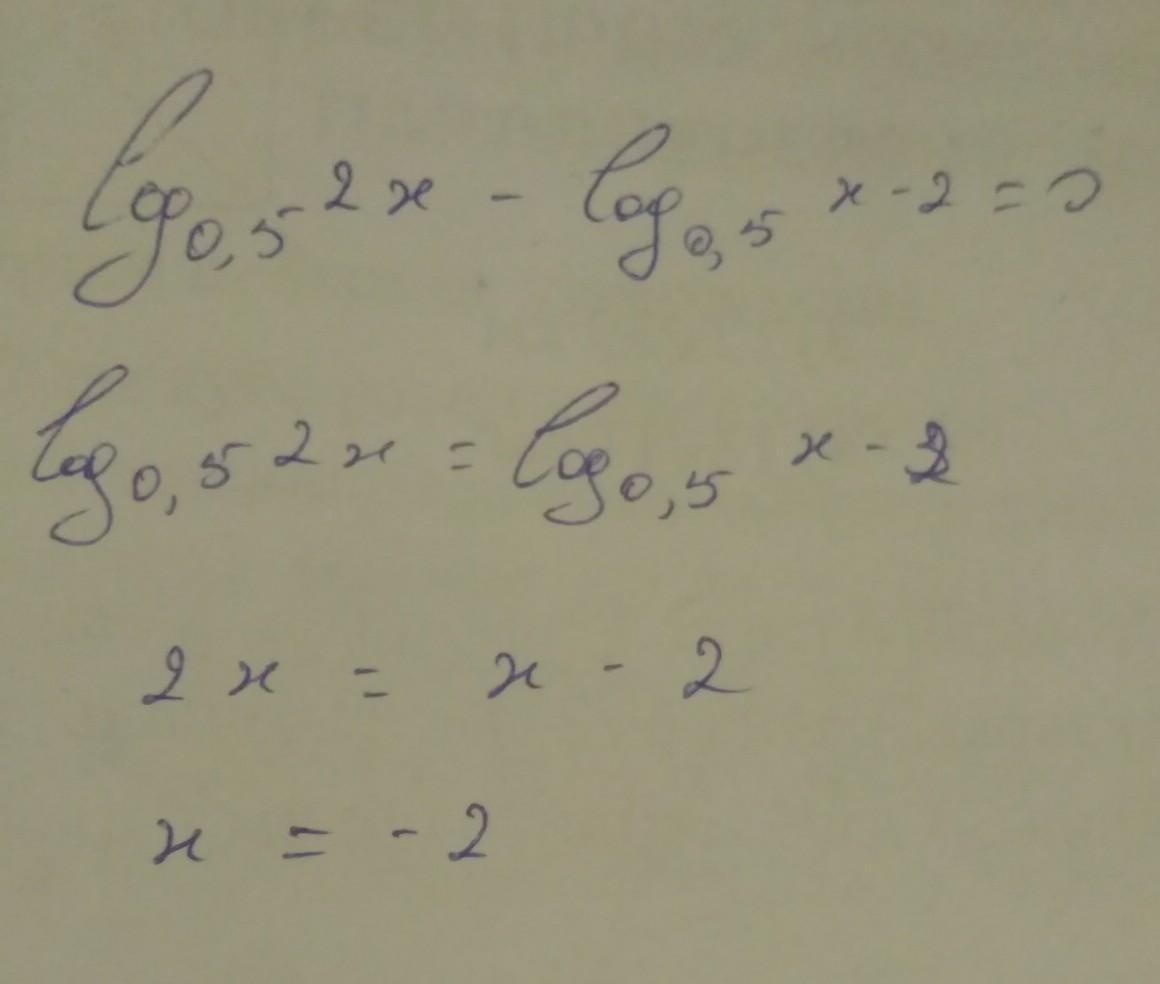 log₀,₅ 2x - log₀,₅ x - 2 = 0
log₀,₅ 2x = log₀,₅ x - 2
2x = x - 2
x = - 2